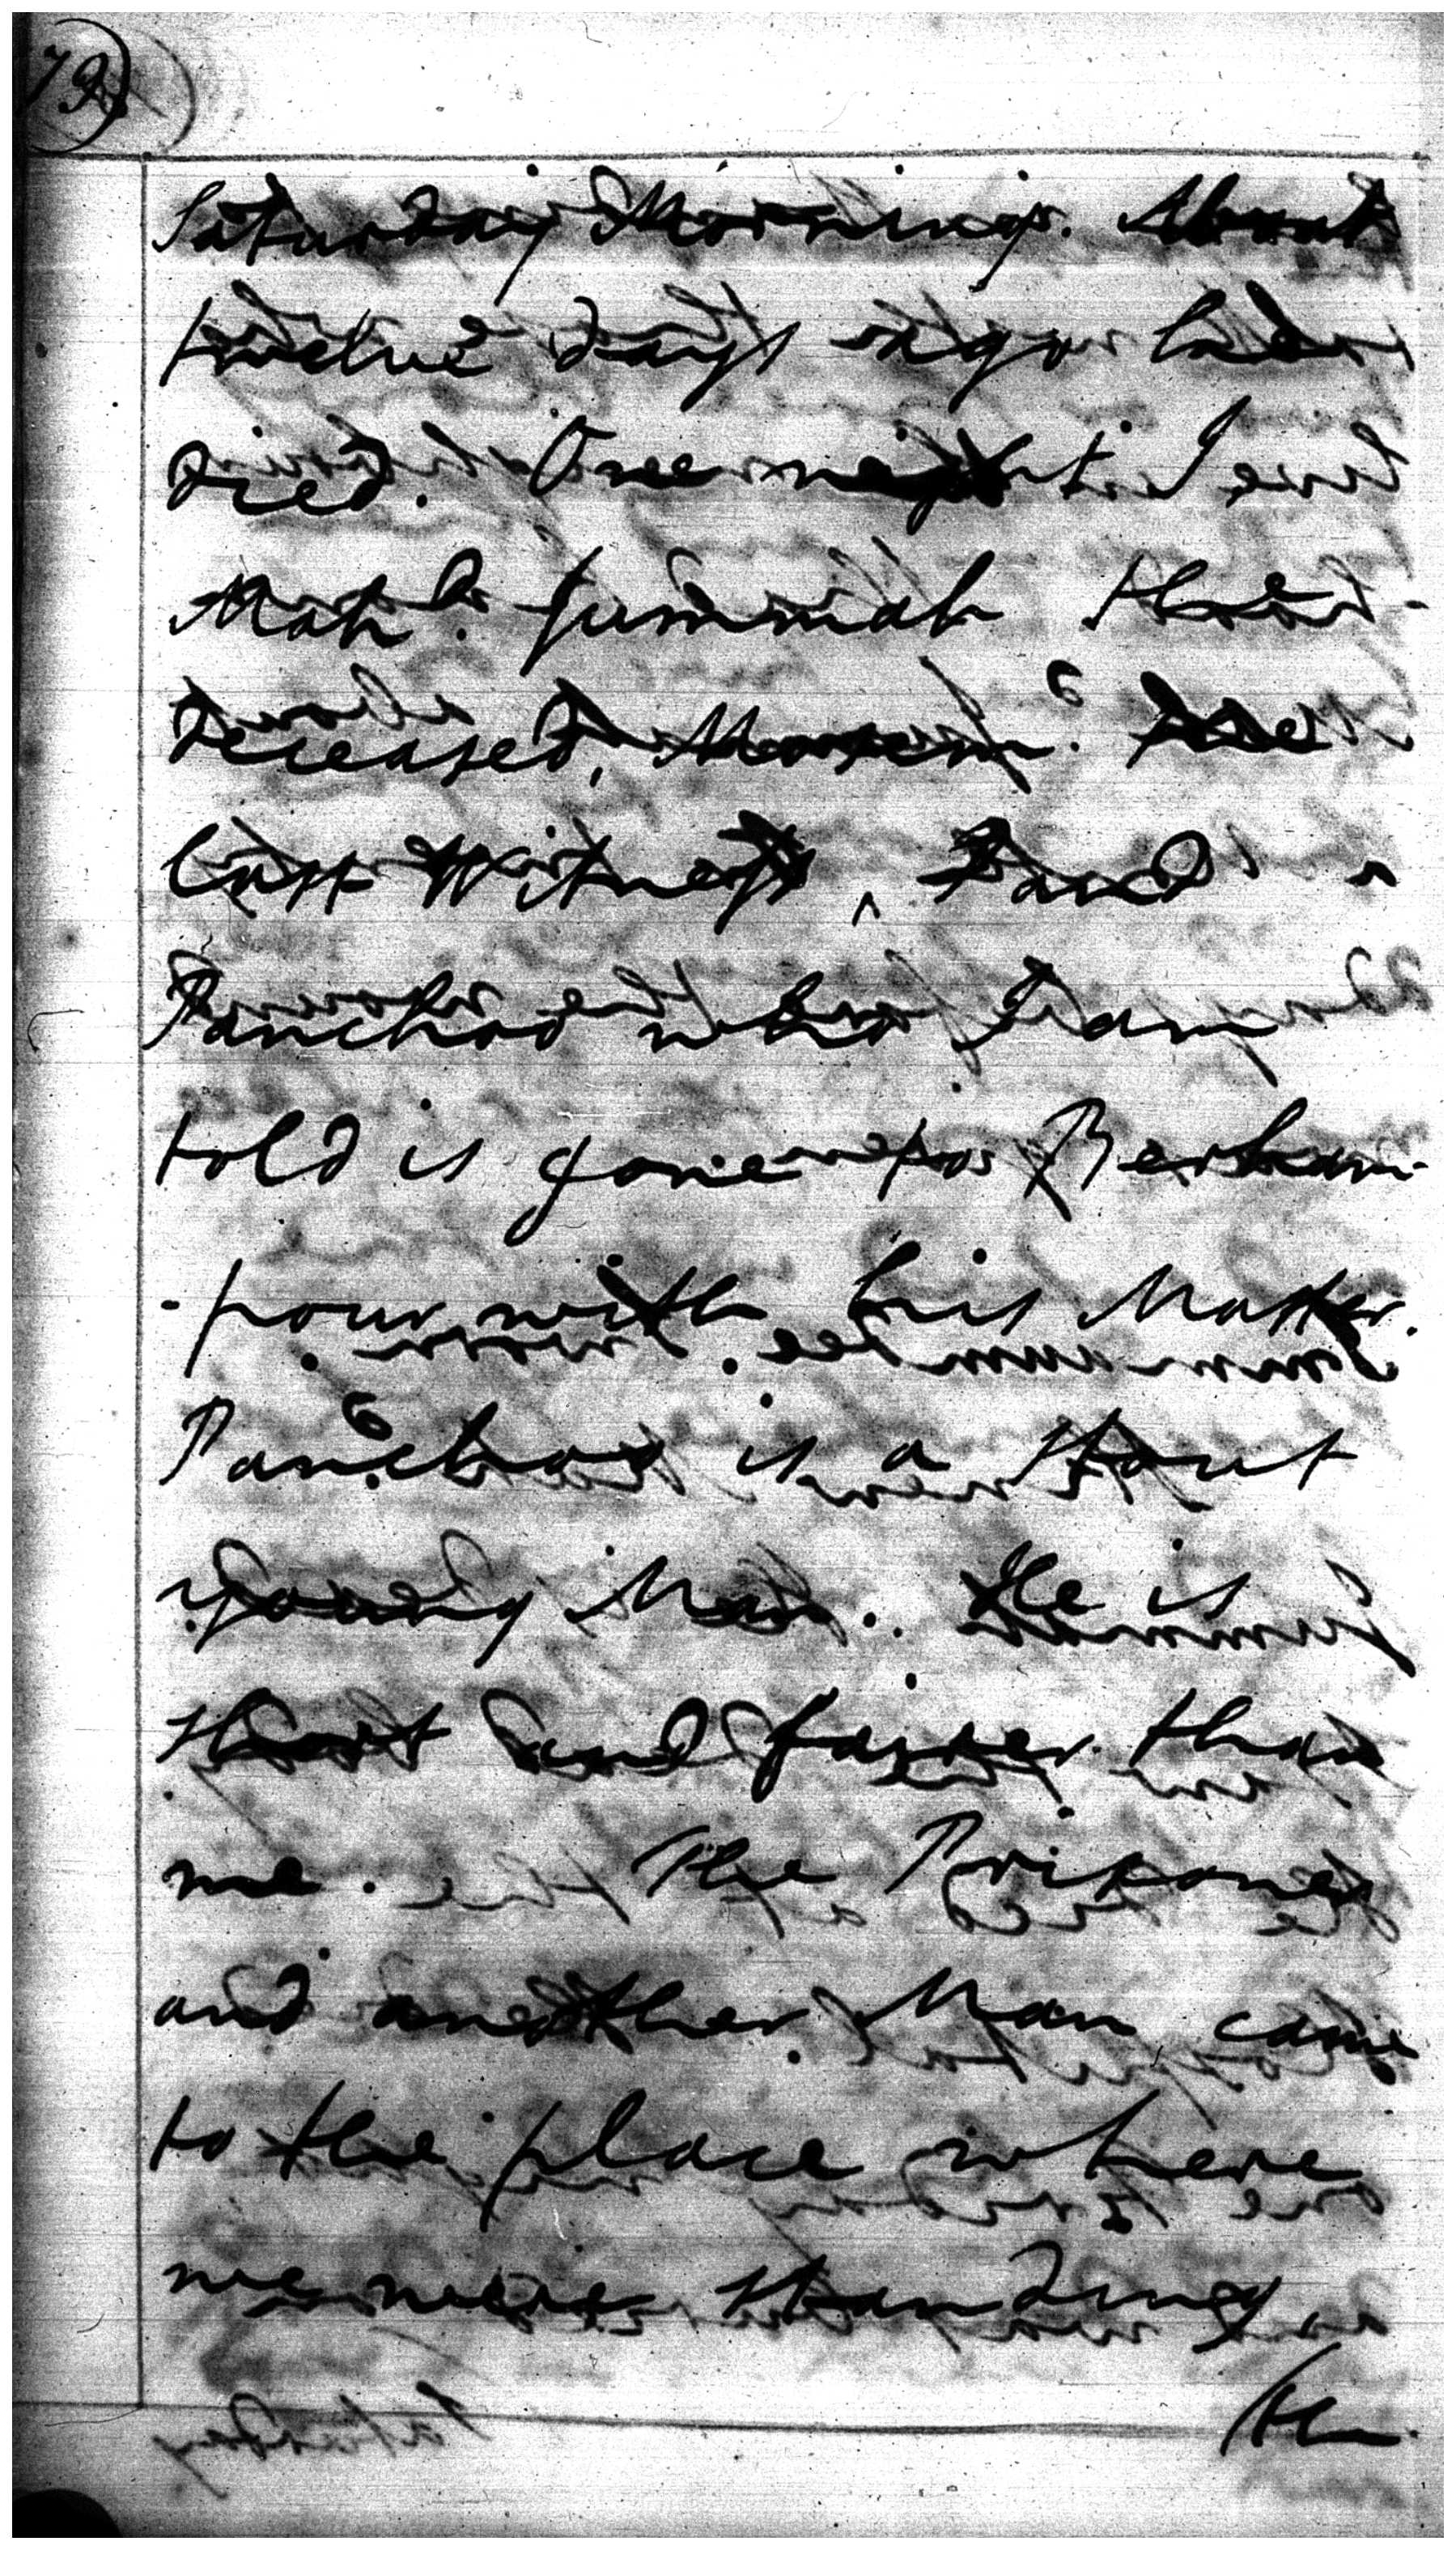 79)
Saturday Morning. About
twelve days ago he
died. One night I
Mah.d Jummah the
deceased, the
last Witness, and
Panchoo who I am
told is gone to Berham-
-pour with his Master.
Panchoo is a stout
young Man. He is
short and fairer than
me. The Prisoner
and another Man came
to the place where
we were standing,
(the